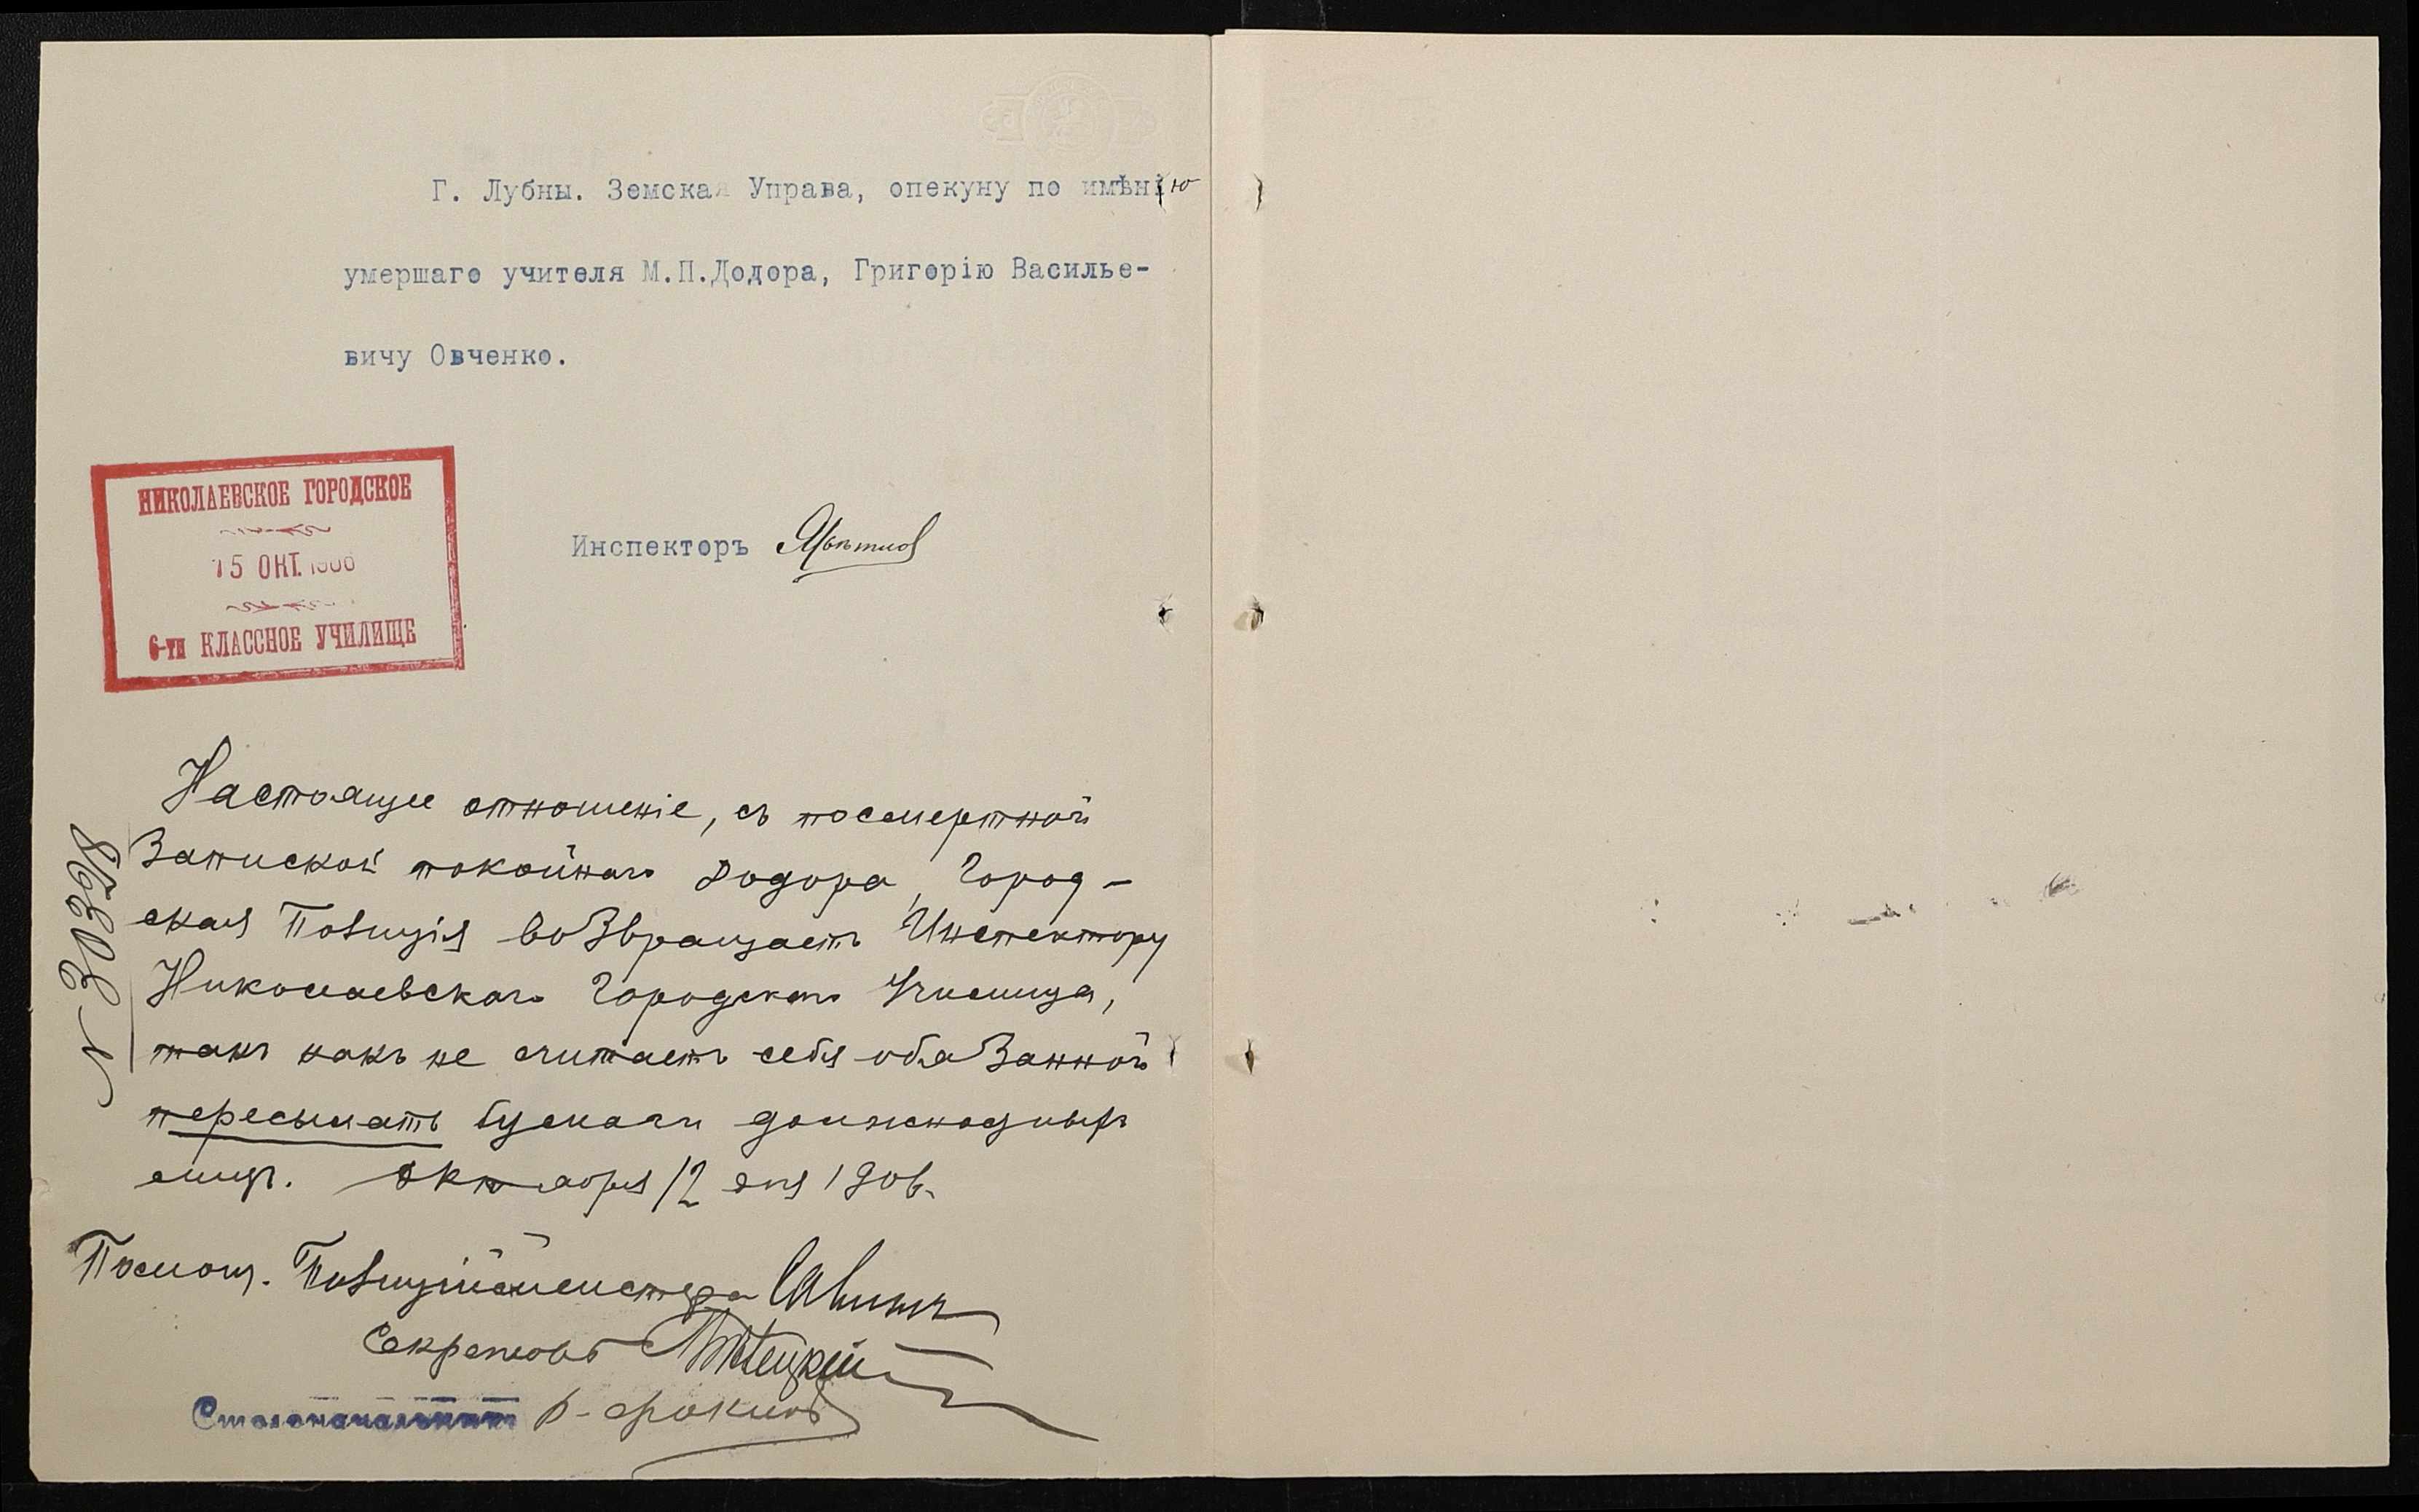 Г. Лубны. Земская Управа, опекуну по имѣнію
умершаго учителя М.П.Додора, Григорію Василье-
вичу Овченко.
НИКОЛАЕВСКОЕ ГОРОДСКОЕ
15 ОКТ. 1906
6-ти КЛАССНОЕ УЧИЛИЩЕ
Инспекторъ
Настоящее отношеніе, съ посмертной
Запиской покойнаго Додора, Город-
ская Полиція возвращаетъ Инспектору
Николаевскаго Городского Училища,
такъ какъ не считаетъ себя обязанной
пересылать бумаги должностныхъ
лицъ. Октября 12 дня 1906.
№ 30328
Помощ. Полиціймейстера
Секретарь
Столоначальникъ